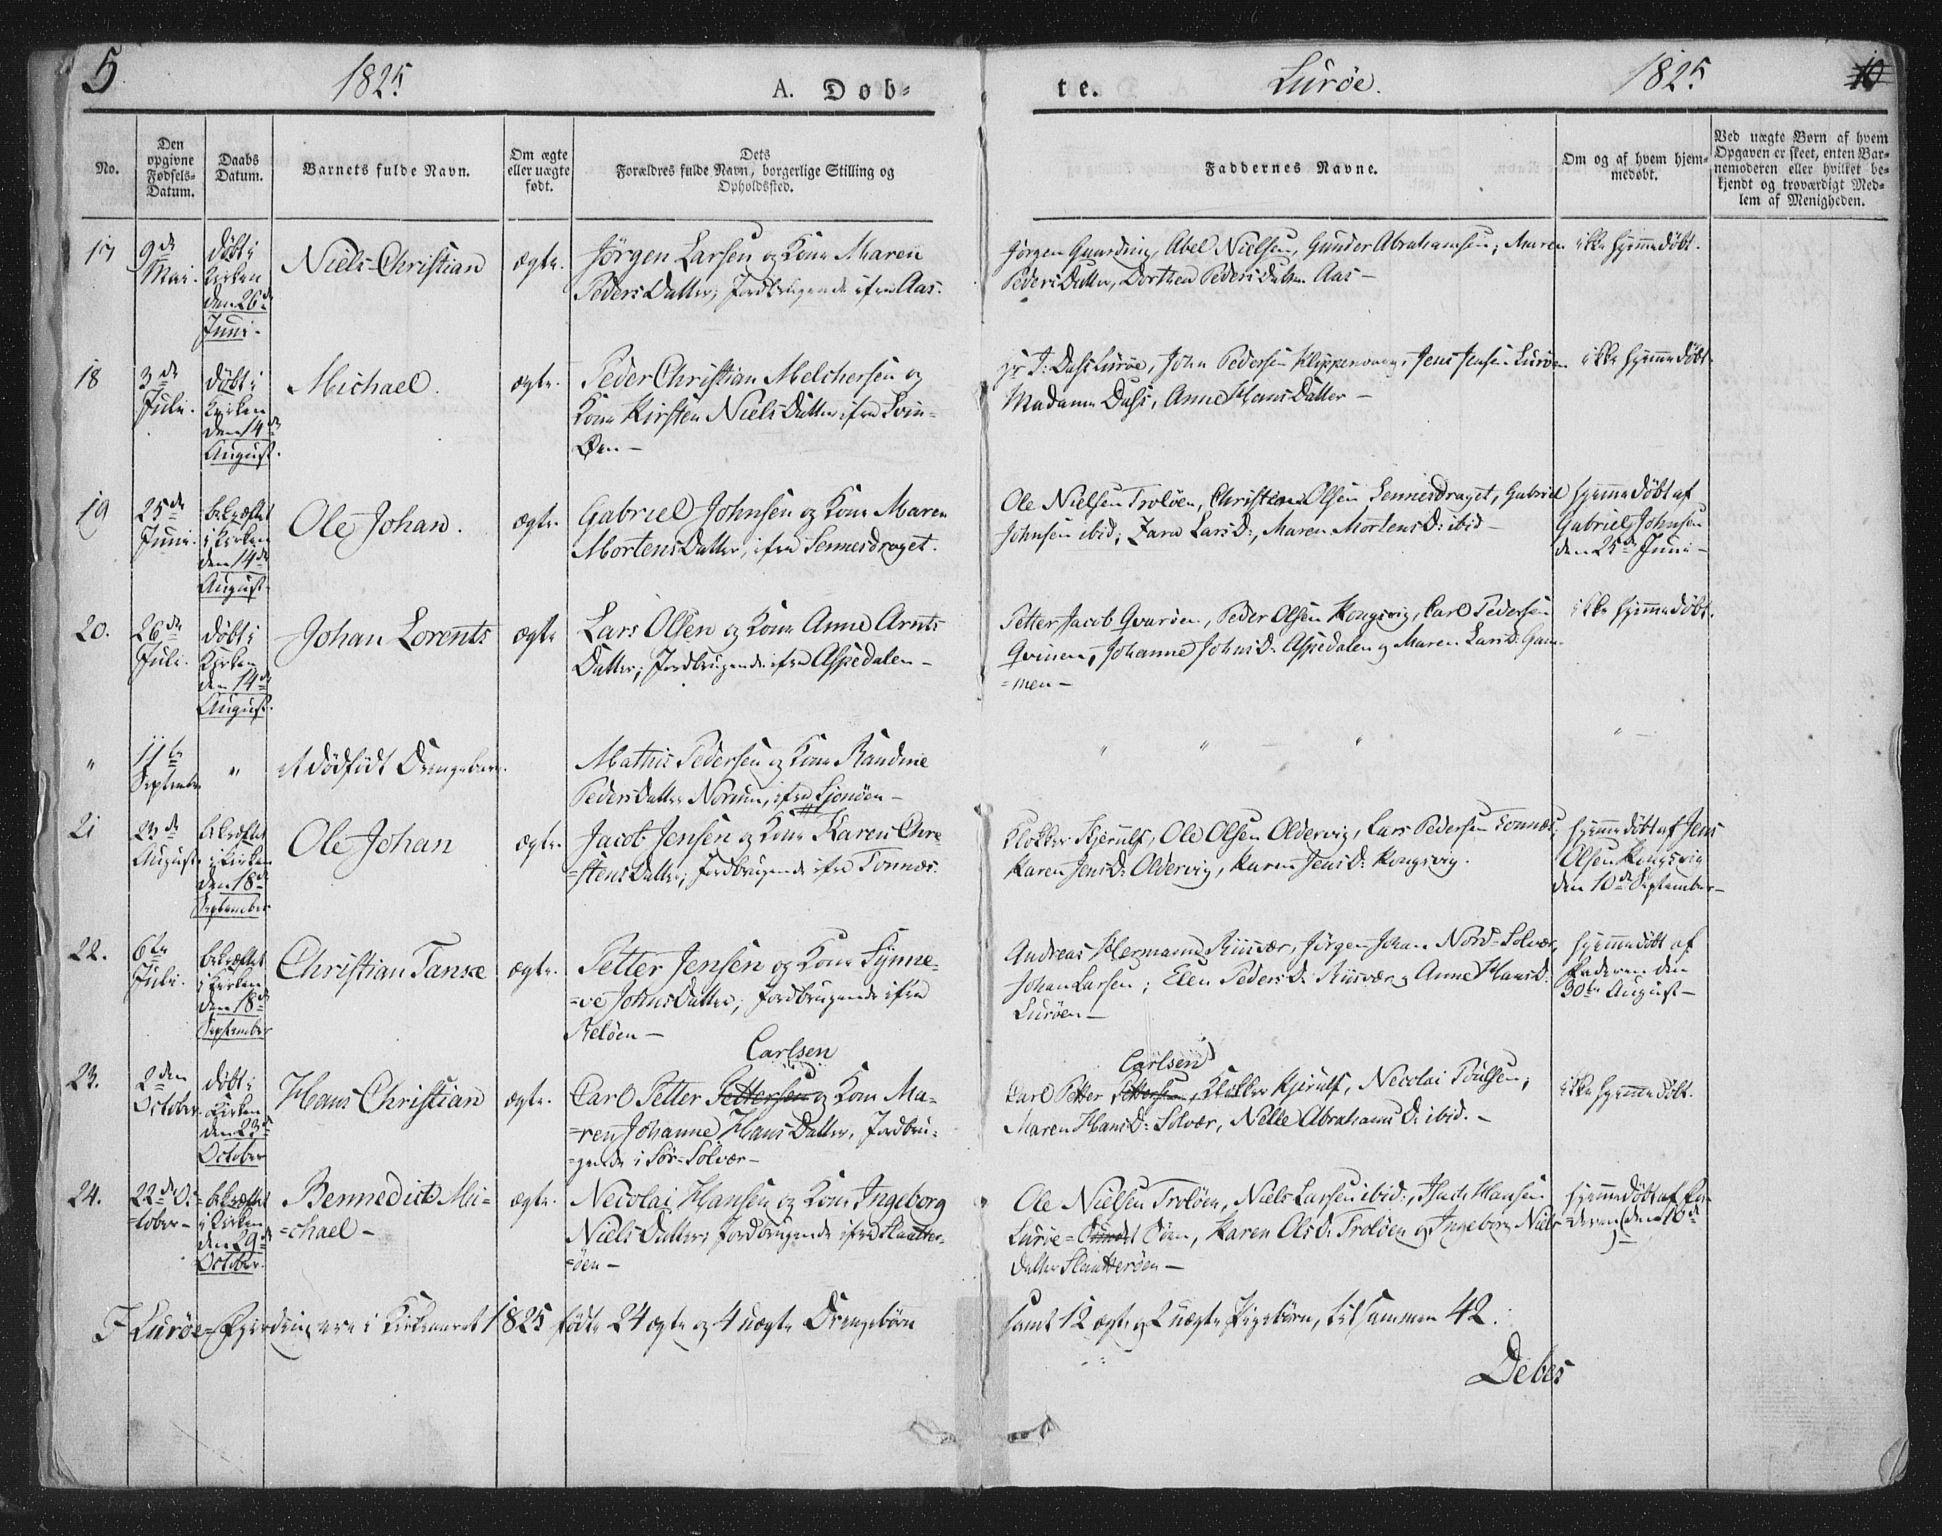 5 1825 A. Døb-
te. Lurøe. 1825 10
No.
Den opgivne Fødsels-Datum.
Daabs Datum.
Barnets fulde Navn.
Om ægte eller uægte født.
Dets Forældres fulde Navn, borgerlige Stilling og Opholdsted.
Faddernes Navne.
Om og af hvem hjem-medøbt.
Ved uægte Børn af hvem Opgaven er skeet, enten Bar-nemoderen eller hvilket be-kjendt og troværdigt Med-lem af Menigheden.
17
9de
Mai.
døbt i
Kirken
den 26de
Juni.
Niels Christian
ægte.
Jørgen Larsen og Kone Maren
Peders Datter; Jordbrugende ifra Aas.
Jørgen Quarding, Abel Nielsen, Gunder Abrahamsen; Maren
Peders Datter, Dorthea Peders Datter Aas –
ikke hjemmedøbt.
18
3de
Juli.
døbt i
Kirken
den 14de
August.
Michael.
ægte.
Peder Christian Melchersen og
Kone Kirsten Niels Datter ifra Svin-
Øen –
Hr J: Dass Lurøe, John Pedersen Klippenvaag, Jens Jensen Lurøen
Madame Dass, Anne Hans Datter –
ikke hjemmedøbt
19
25de
Juni.
bekræftet
i Kirken
den 14de
August.
Ole Johan.
ægte.
Gabriel Johnsen og Kone Maren
Mortens Datter, ifra Sennesdraget.
Ole Nielsen Troløen, Christian Olsen Sennesdraget, Gabriel
Johnsen ibid; Zara Lars D:, Maren Mortens D: ibid –
hjemmedøbt af
Gabriel Johnsen
den 25de Juni –
20.
26de
Juli.
døbt i
Kirken
den 14de
August.
Johan Lorents
ægte
Lars Olsen og Kone Anne Arnts
Datter; Jordbrugende ifra Aspedalen –
Petter Jacob Qvarøen, Peder Olsen Kongsvig, Carl Pedersen
Qvinen, Johanne Johns D: Aspedalen og Maren Lars D: Ham-
=men –
ikke hjemmedøbt.
"
11te
September
"
et dødfødt Drengebarn.
Mathis Pedersen og Kone Randine
Peders Datter Norum, ifra Sjonøen –
" " " "
21
23de
August
bekræftet
i Kirken
den 18de
September
Ole Johan
ægte.
Jacob Jensen og Kone Karen Chri-
=stens Datter; Jordbrugende ifra Tonnæs.
Klokker Kjerulf, Ole Olsen Oldervig, Lars Pedersen Tonnæs,
Karen Jens D: Oldervig, Karen Jens D: Kongsvig.
hjemmedøbt af Jens
Olsen Kongsvig
den 10de September –
22.
6te
Juli.
bekræftet
i Kirken
den 18de
September
Christian Tansæ
ægte.
Petter Jensen og Kone Synne-
=ve Johns Datter; Jordbrugende ifra
Reløen –
Andreas Hermansen Riisvær, Jørgen Johan Nord-Solvær,
Johan Larsen; Elen Peders D: Riisvær og Anne Hans D:
Lurøen –
hjemmedøbt af
Faderen den
30te August –
23.
2den
October
døbt i
Kirken
den 23de
October
Hans Christian
ægte.
Carlsen
Carl Petter Pettersen og Kone Ma-
=ren Johanne Hans Datter, Jordbru-
=gende i Sør-Solvær –
Carlsen
Carl Petter Pettersen, Klokker Kjerulf, Necolai Poulsen;
Maren Hans D: Solvær, Nelle Abrahams D: ibid. –
ikke hjemmedøbt.
24.
22de Oc-
=tober –
bekræftet
i Kirken
den 29de
October.
Bennedict Mi-
=chael –
ægte.
Necolai Hansen og Kone Ingeborg
Niels Datter; Jordbrugende ifra Slaatter-
=øen –
Ole Nielsen Troløen, Niels Larsen ibid:, Isach Hansen
Lurøe- Sundet Øen, Karen Ols D: Troløen og Ingeborg Niels
Datter Slaatterøen –
hjemmedøbt af Fa-
=deren den 10de
I Lurøe-Fjerding ere i Kirkeaaret 1825 fødte 24 ægte og 4 uægte Drengebørn
samt 12 ægte og 2 uægte Pigebørn, tilsammen 42.
Debes